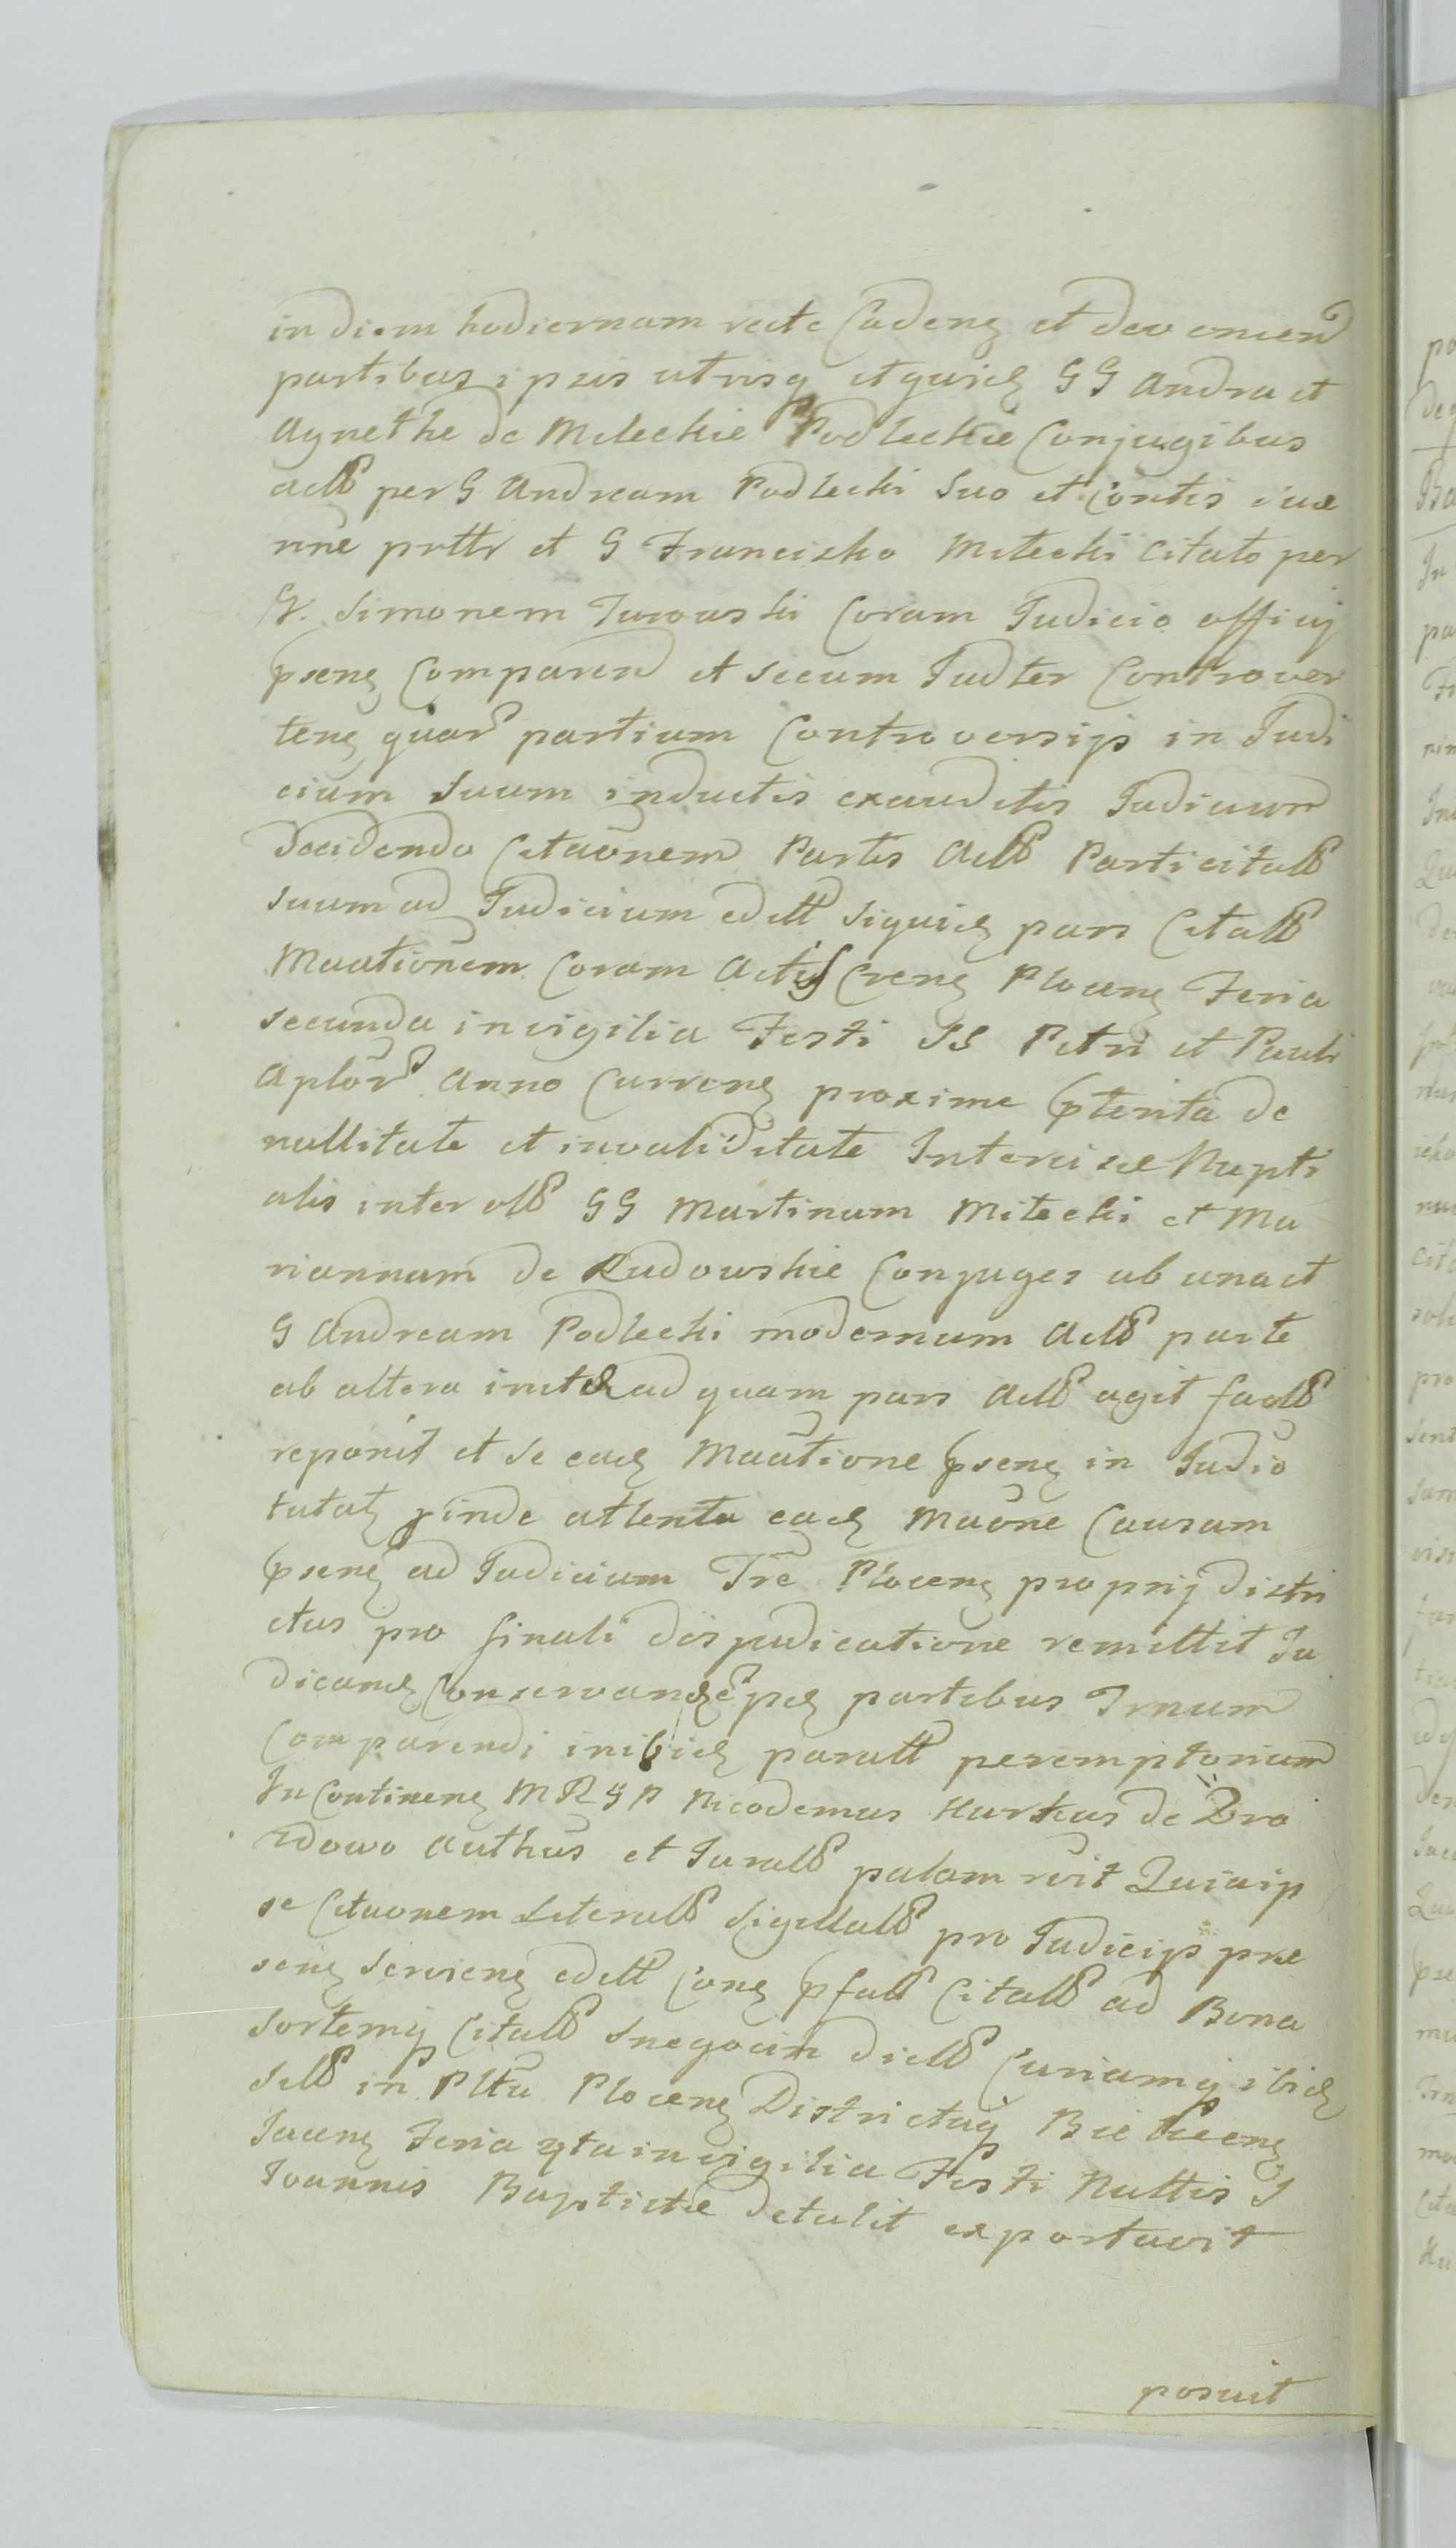 in diem hodiernam recte Cadenȝ et devenienꝺ
partibus ipsis utrisq et quideȝ GG Andrea et
Agnethe de Mileckie Podleckie Conjugibus
actt per G Andream Podlecki Suo et Contis suæ
nne prttr et G Francisko Mitecki citato per
G. Simonem Turowski Coram Judicio officij
pseng Comparenꝺ et secum Judter Controver
teng quar partium Controversijs in Judi
cium suum inductis exauditis Judicium
Decidendo Citaõnem Partis Actt Parti citatt
suum ad Judicium editt siquideȝ pars Citatt
Maationem Coram Actis Creng Ploceng Feria
secunda in vigilia Festi SS Petri et Pauli
Aplor Anno Curreng proxime pterita de
nullitate et invaliditate Intercisæ Nupti
alis inter olt GG Martinum Mitecki et Ma
riannam de Rudowskie Conjuges ab una et
G Andream Podlecki modernum Actt parte
ab altera initæ ad quam pars Actt agit factt
reponit et se eadȝ Maatione pseng in Judio
tutatȝ proinde attenta eadȝ Maõne Causam
pseng ad Judicium Tre Ploceng proprij distri
ctus pro finali disjudicatione remittit Ju
dicandȝ Conservandȝ partibus Trnum
Comparendi inibidȝ paratt peremptorium
In Continenȝ MRGD Nicodemus Kurkus de Bra
dowo Authus et Juratt palam rcit Quia ip
se Citaonem Literatt Sigillatt pro Judicijs præ
seng servieng editt Cong pfatt Citatt ad Bona
sortemq Citatt Snegocin dictt Curiamq ibidȝ
sitt in Pltu Ploceng Districtuq Bielsceng
Jaceng Feria 4ta in vigilia Festi Nattis S
Joannis Baptistæ detulit exportavit
posuit